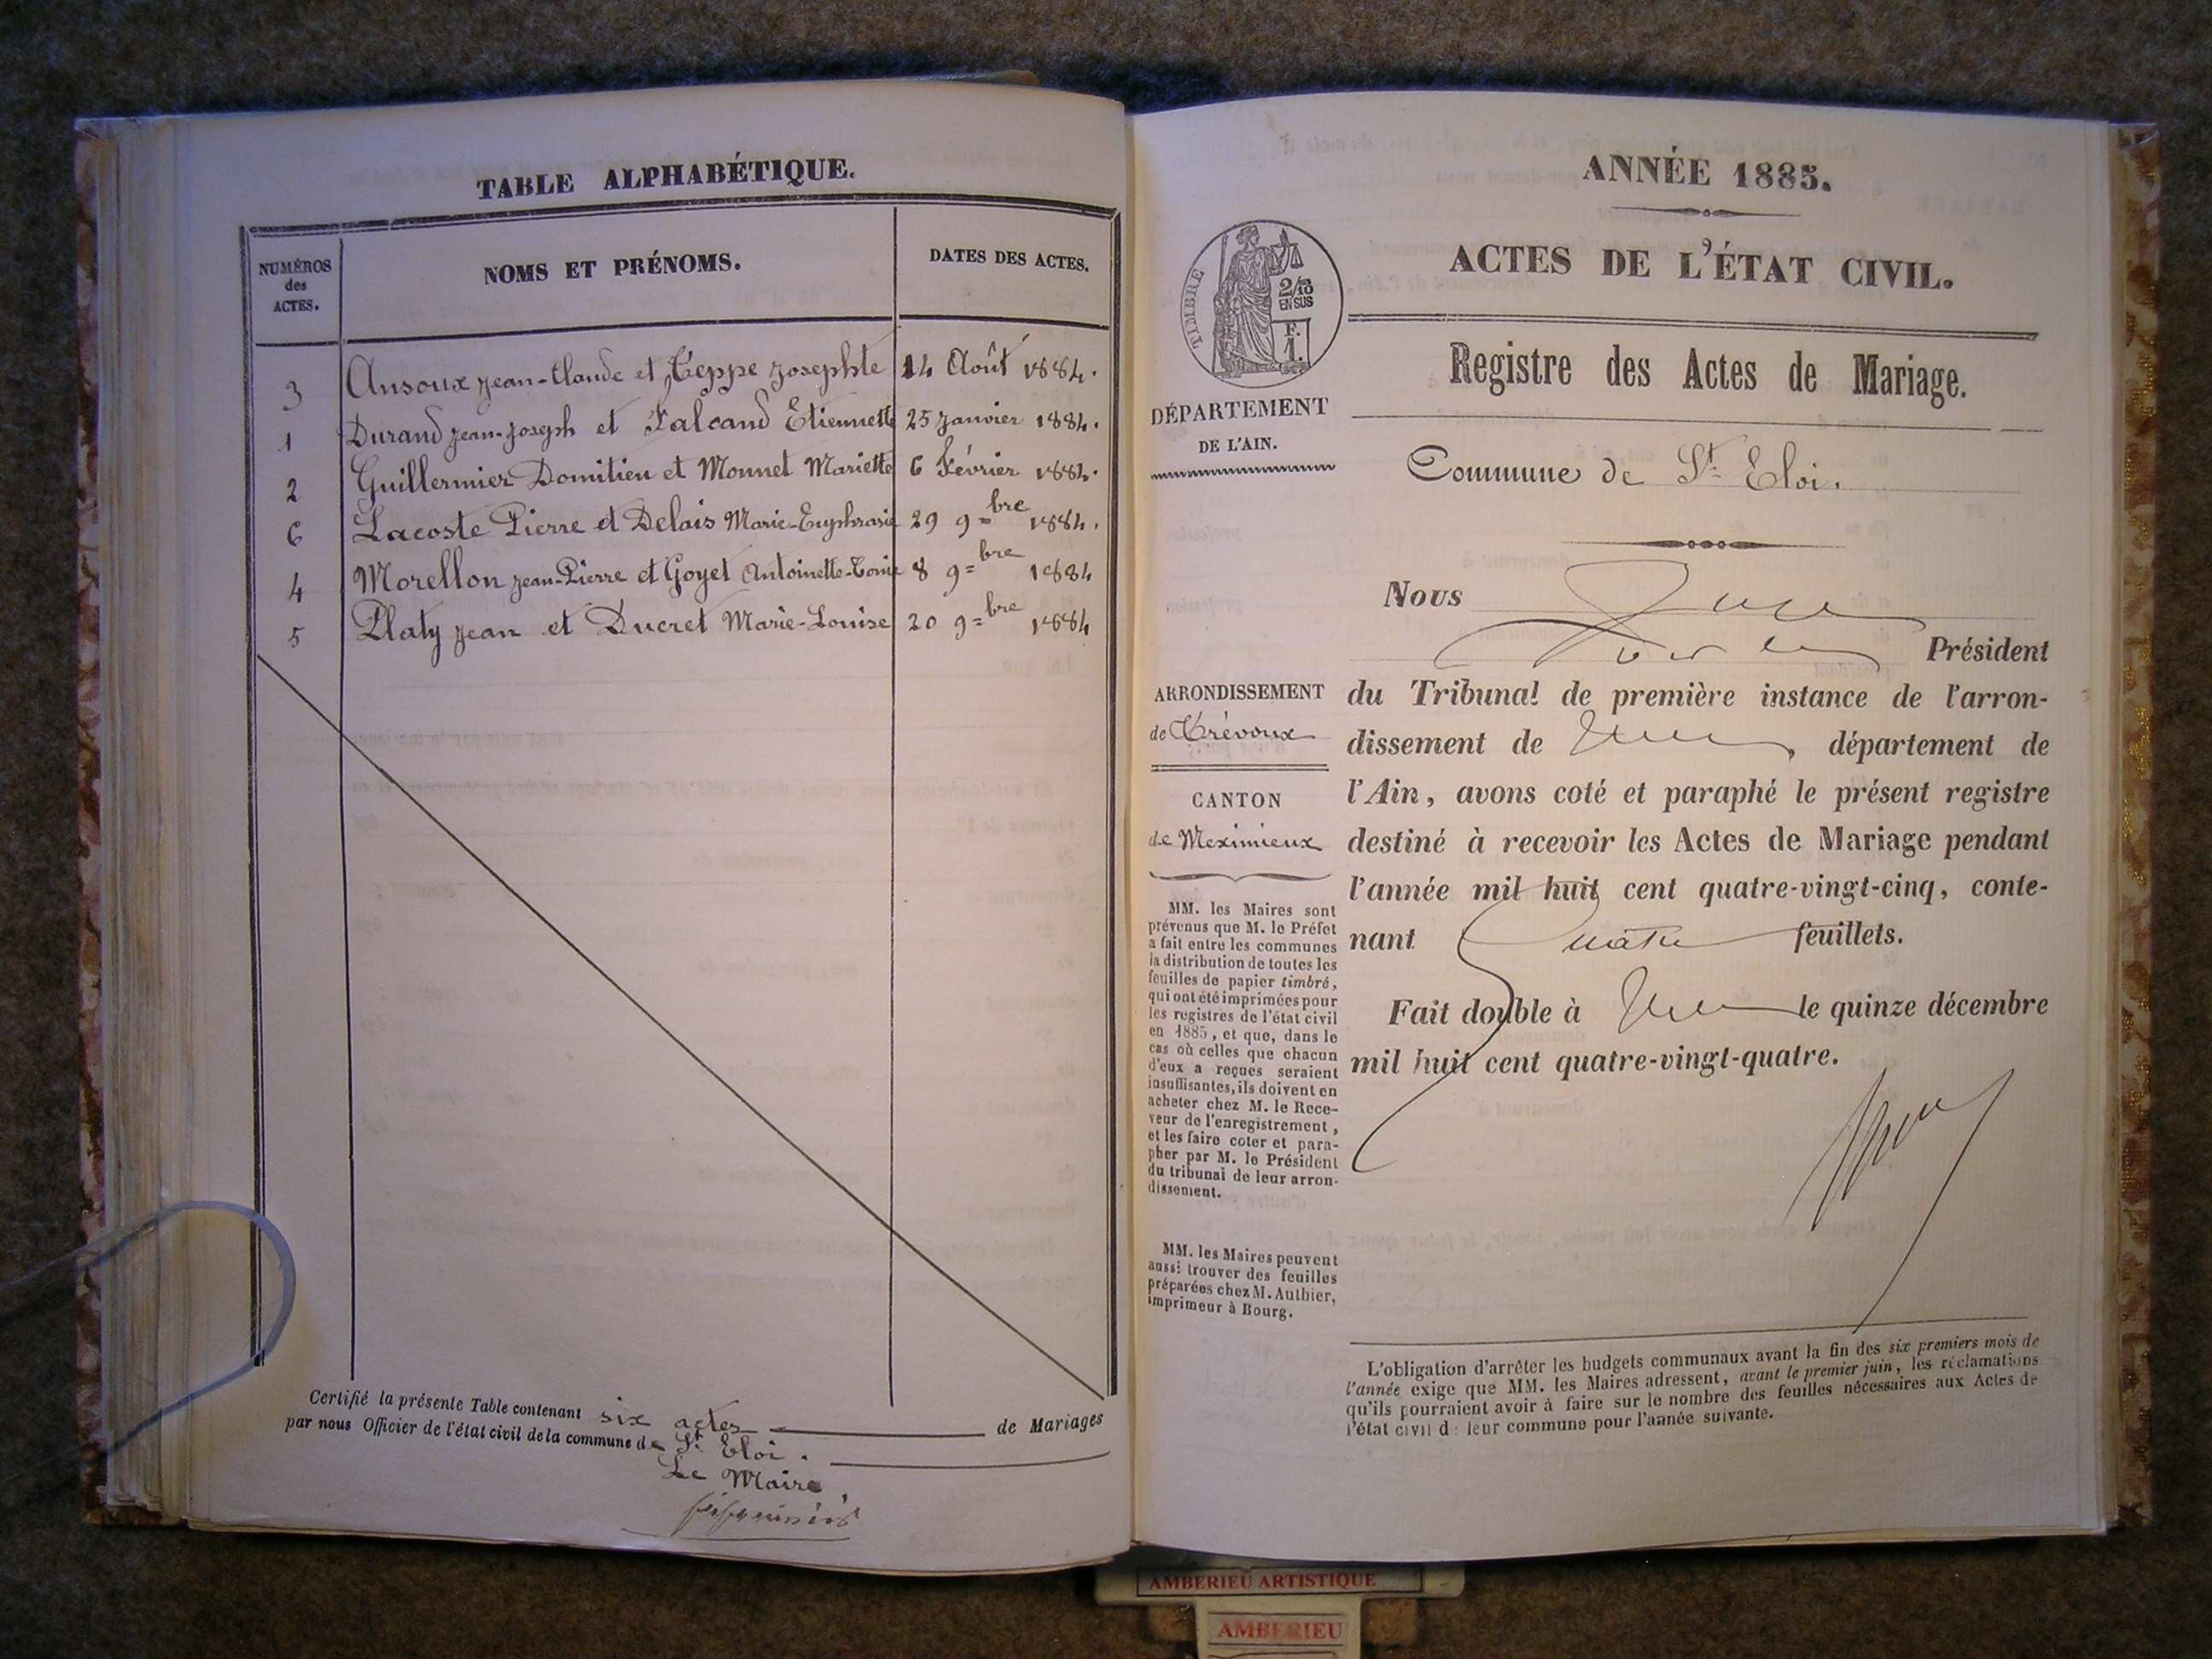 TABLE ALPHABÉTIQUE.
NUMÉROS des ACTES.
NOMS ET PRÉNOMS.
DATES DES ACTES.
3 Ansoux Jean-Claude et Teppe Josephte 14 Août 1884.
1 Durand Jean-Joseph et Falcand Etiennette 25 Janvier 1884.
2 Guillermier Domitien et Monnet Mariette 6 Février 1884.
6 Lacoste Pierre et Delais Marie-Euphrasie 29 9=bre 1884.
4 Morellon Jean-Pierre et Goyet Antoinette- 8 9=bre 1884
5 Platy Jean et Ducret Marie-Louise 20 9=bre 1884
Certifié la présente Table contenant six actes de Mariages
par nous Officier de l'état civil de la commune de St Eloi.
Le Maire
ANNÉE 1885.
ACTES DE L'ÉTAT CIVIL.
TIMBRE
2/10
EN SUS
F.
1.
Registre des Actes de Mariage.
DÉPARTEMENT
DE L'AIN.
Commune de St Eloi.
Nous
Président
ARRONDISSEMENT
de Trévoux
CANTON
de Meximieux
du Tribunal de première instance de l'arron-
dissement de , département de
l'Ain, avons coté et paraphé le présent registre
destiné à recevoir les Actes de Mariage pendant
l'année mil huit cent quatre-vingt-cinq, conte-
nant Quatre feuillets.
Fait double à le quinze décembre
mil huit cent quatre-vingt-quatre.
MM. les Maires sont
prévenus que M. le Préfet
a fait entre les communes
la distribution de toutes les
feuilles de papier timbré,
qui ont été imprimées pour
les registres de l'état civil
en 1885, et que, dans le
cas où celles que chacun
d'eux a reçues seraient
insuffisantes, ils doivent en
acheter chez M. le Rece-
veur de l'enregistrement,
et les faire coter et para-
pher par M. le Président
du tribunal de leur arron-
dissement.
MM. les Maires peuvent
aussi trouver des feuilles
préparées chez M. Authier,
imprimeur à Bourg.
L'obligation d'arrêter les budgets communaux avant la fin des six premiers mois de
l'année exige que MM. les Maires adressent, avant le premier juin, les réclamations
qu'ils pourraient avoir à faire sur le nombre des feuilles nécessaires aux Actes de
l'état civil d: leur commune pour l'année suivante.
AMBERIEU ARTISTIQUE
AMBERIEU